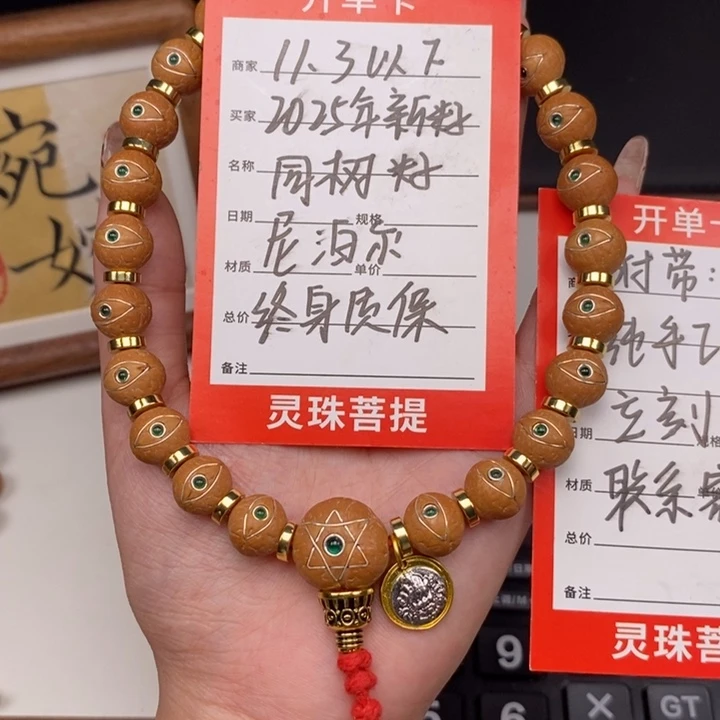 开单卡
商家 11.3以下
买家 2025年新籽
名称 同树籽
日期 尼泊尔 规格
材质 单价
总价 终身质保
备注
灵珠菩提
开单卡
附带:
纯手工
日期 立刻
材质 联系客
总价
备注
灵珠菩
宛
如
9
5
6
×
GT